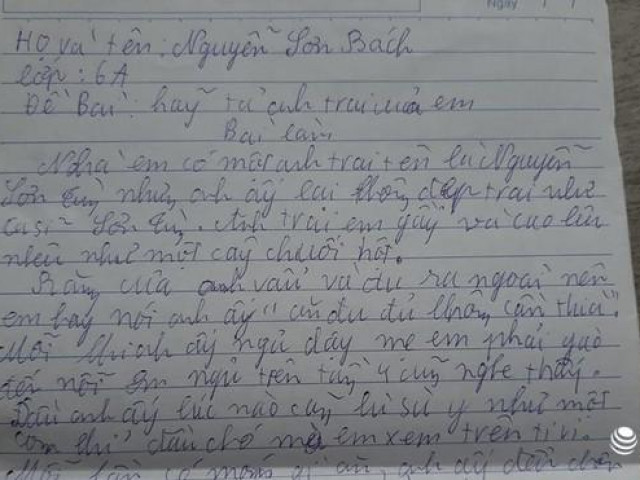 Ngày / /
Họ và tên: Nguyễn Sơn Bách
Lớp: 6A
Đề Bài: hãy tả anh trai của em
Bài làm
Nhà em có một anh trai tên là Nguyễn
Sơn Tùng nhưng anh ấy lại không đẹp trai như
ca sĩ Sơn Tùng. Anh trai em gầy và cao lêu
nghêu như một cây chuối hột.
Răng của anh vẩu và đưa ra ngoài nên
em hay nói anh ấy "ăn đu đủ không cần thìa".
Mỗi khi anh ấy ngủ dậy mẹ em phải quát
đến nỗi em ngủ trên tầng 4 cũng nghe thấy.
Đầu anh ấy lúc nào cũng lù sù y như một
con thú đầu chó mà em xem trên ti vi.
Mỗi lần có món gì ăn, anh ấy đều